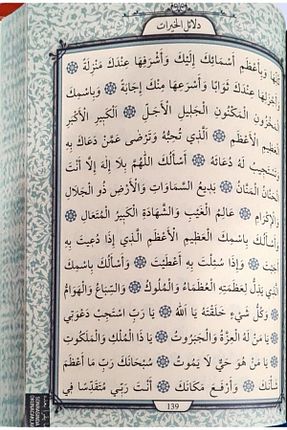 دلائل الخيرات
إِلَيْهَا وَبِأَعْظَمِ أَسْمَائِكَ إِلَيْكَ وَأَشْرَفِهَا عِنْدَكَ مَنْزِلَةً
وَأَجْزَلِهَا عِنْدَكَ ثَوَابًا وَأَسْرَعِهَا مِنْكَ إِجَابَةً ۞ وَبِاسْمِكَ
الْمَخْزُونِ الْمَكْنُونِ الْجَلِيلِ الْأَجَلِّ ۞ الْكَبِيرِ الْأَكْبَرِ
الْعَظِيمِ الْأَعْظَمِ ۞ الَّذِي تُحِبُّهُ وَتَرْضَى عَمَّنْ دَعَاكَ بِهِ
وَتَسْتَجِيبُ لَهُ دُعَائَهُ ۞ أَسْأَلُكَ اللّٰهُمَّ بِلَا إِلٰهَ إِلَّا أَنْتَ
الْحَنَّانُ الْمَنَّانُ ۞ بَدِيعُ السَّمَاوَاتِ وَالْأَرْضِ ذُو الْجَلَالِ
وَالْإِكْرَامِ ۞ عَالِمُ الْغَيْبِ وَالشَّهَادَةِ الْكَبِيرُ الْمُتَعَالِ ۞
وَأَسْأَلُكَ بِاسْمِكَ الْعَظِيمِ الْأَعْظَمِ الَّذِي إِذَا دُعِيتَ بِهِ
أَجَبْتَ ۞ وَإِذَا سُئِلْتَ بِهِ أَعْطَيْتَ ۞ وَأَسْأَلُكَ بِاسْمِكَ
الَّذِي يَذِلُّ لِعَظَمَتِهِ الْعُظَمَاءُ وَالْمُلُوكُ ۞ وَالسِّبَاعُ وَالْهَوَامُّ
۞ وَكُلُّ شَيْءٍ خَلَقْتَهُ يَا اللّٰهُ ۞ يَا رَبِّ اسْتَجِبْ دَعْوَتِي
۞ يَا مَنْ لَهُ الْعِزَّةُ وَالْجَبَرُوتُ ۞ يَا ذَا الْمُلْكِ وَالْمَلَكُوتِ
۞ يَا مَنْ هُوَ حَيٌّ لَا يَمُوتُ ۞ سُبْحَانَكَ رَبِّ مَا أَعْظَمَ
شَأْنَكَ ۞ وَأَرْفَعَ مَكَانَكَ ۞ أَنْتَ رَبِّي مُتَقَدِّسًا فِي
139